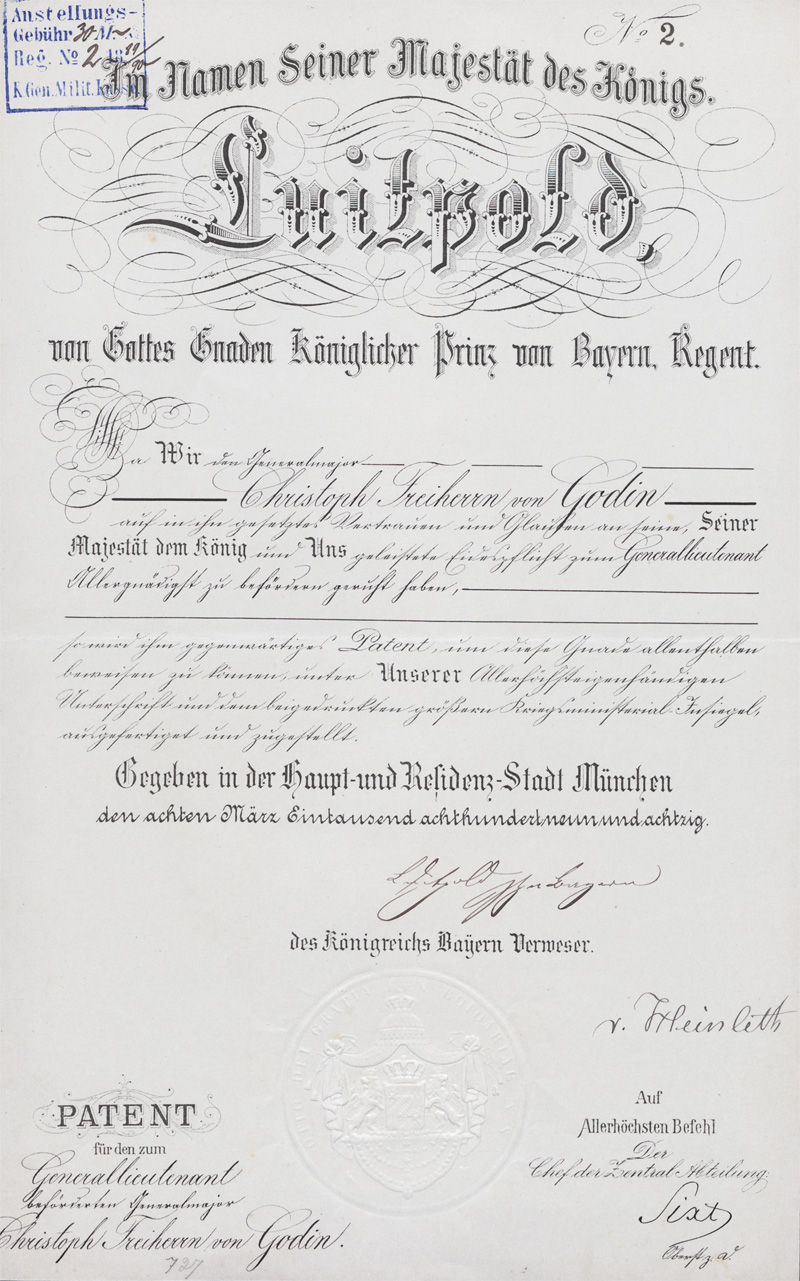 Anstellungs-
Gebühr 30 M.
Reg. No 2 18 89/90
K. Gen. Milit. Kasse
No 2.
Im Namen Seiner Majestät des Königs.
Luitpold,
von Gottes Gnaden Königlicher Prinz von Bayern, Regent.
Da Wir den Generalmajor
Christoph Freiherrn von Godin
auf in ihn gesetztes Vertrauen und Glauben an seine, Seiner
Majestät dem König und Uns geleistete Eidespflicht zum Generallieutenant
Allergnädigst zu befördern geruht haben,
so wird ihm gegenwärtiges Patent, um diese Gnade allenthalben
beweisen zu können, unter Unserer Allerhöchsteigenhändigen
Unterschrift und dem beigedruckten größern Kriegsministerial-Insiegel,
ausgefertiget und zugestellt.
Gegeben in der Haupt- und Residenz-Stadt München
den achten März Eintausend achthundert neun und achtzig.
Luitpold Prz. v. Bayern
des Königreichs Bayern Verweser.
v. Heinleth
PATENT
für den zum
Generallieutenant
beförderten Generalmajor
Christoph Freiherrn von Godin.
727
Auf
Allerhöchsten Befehl
Der
Chef der Zentral-Abteilung:
Sixt
Oberst z. D.